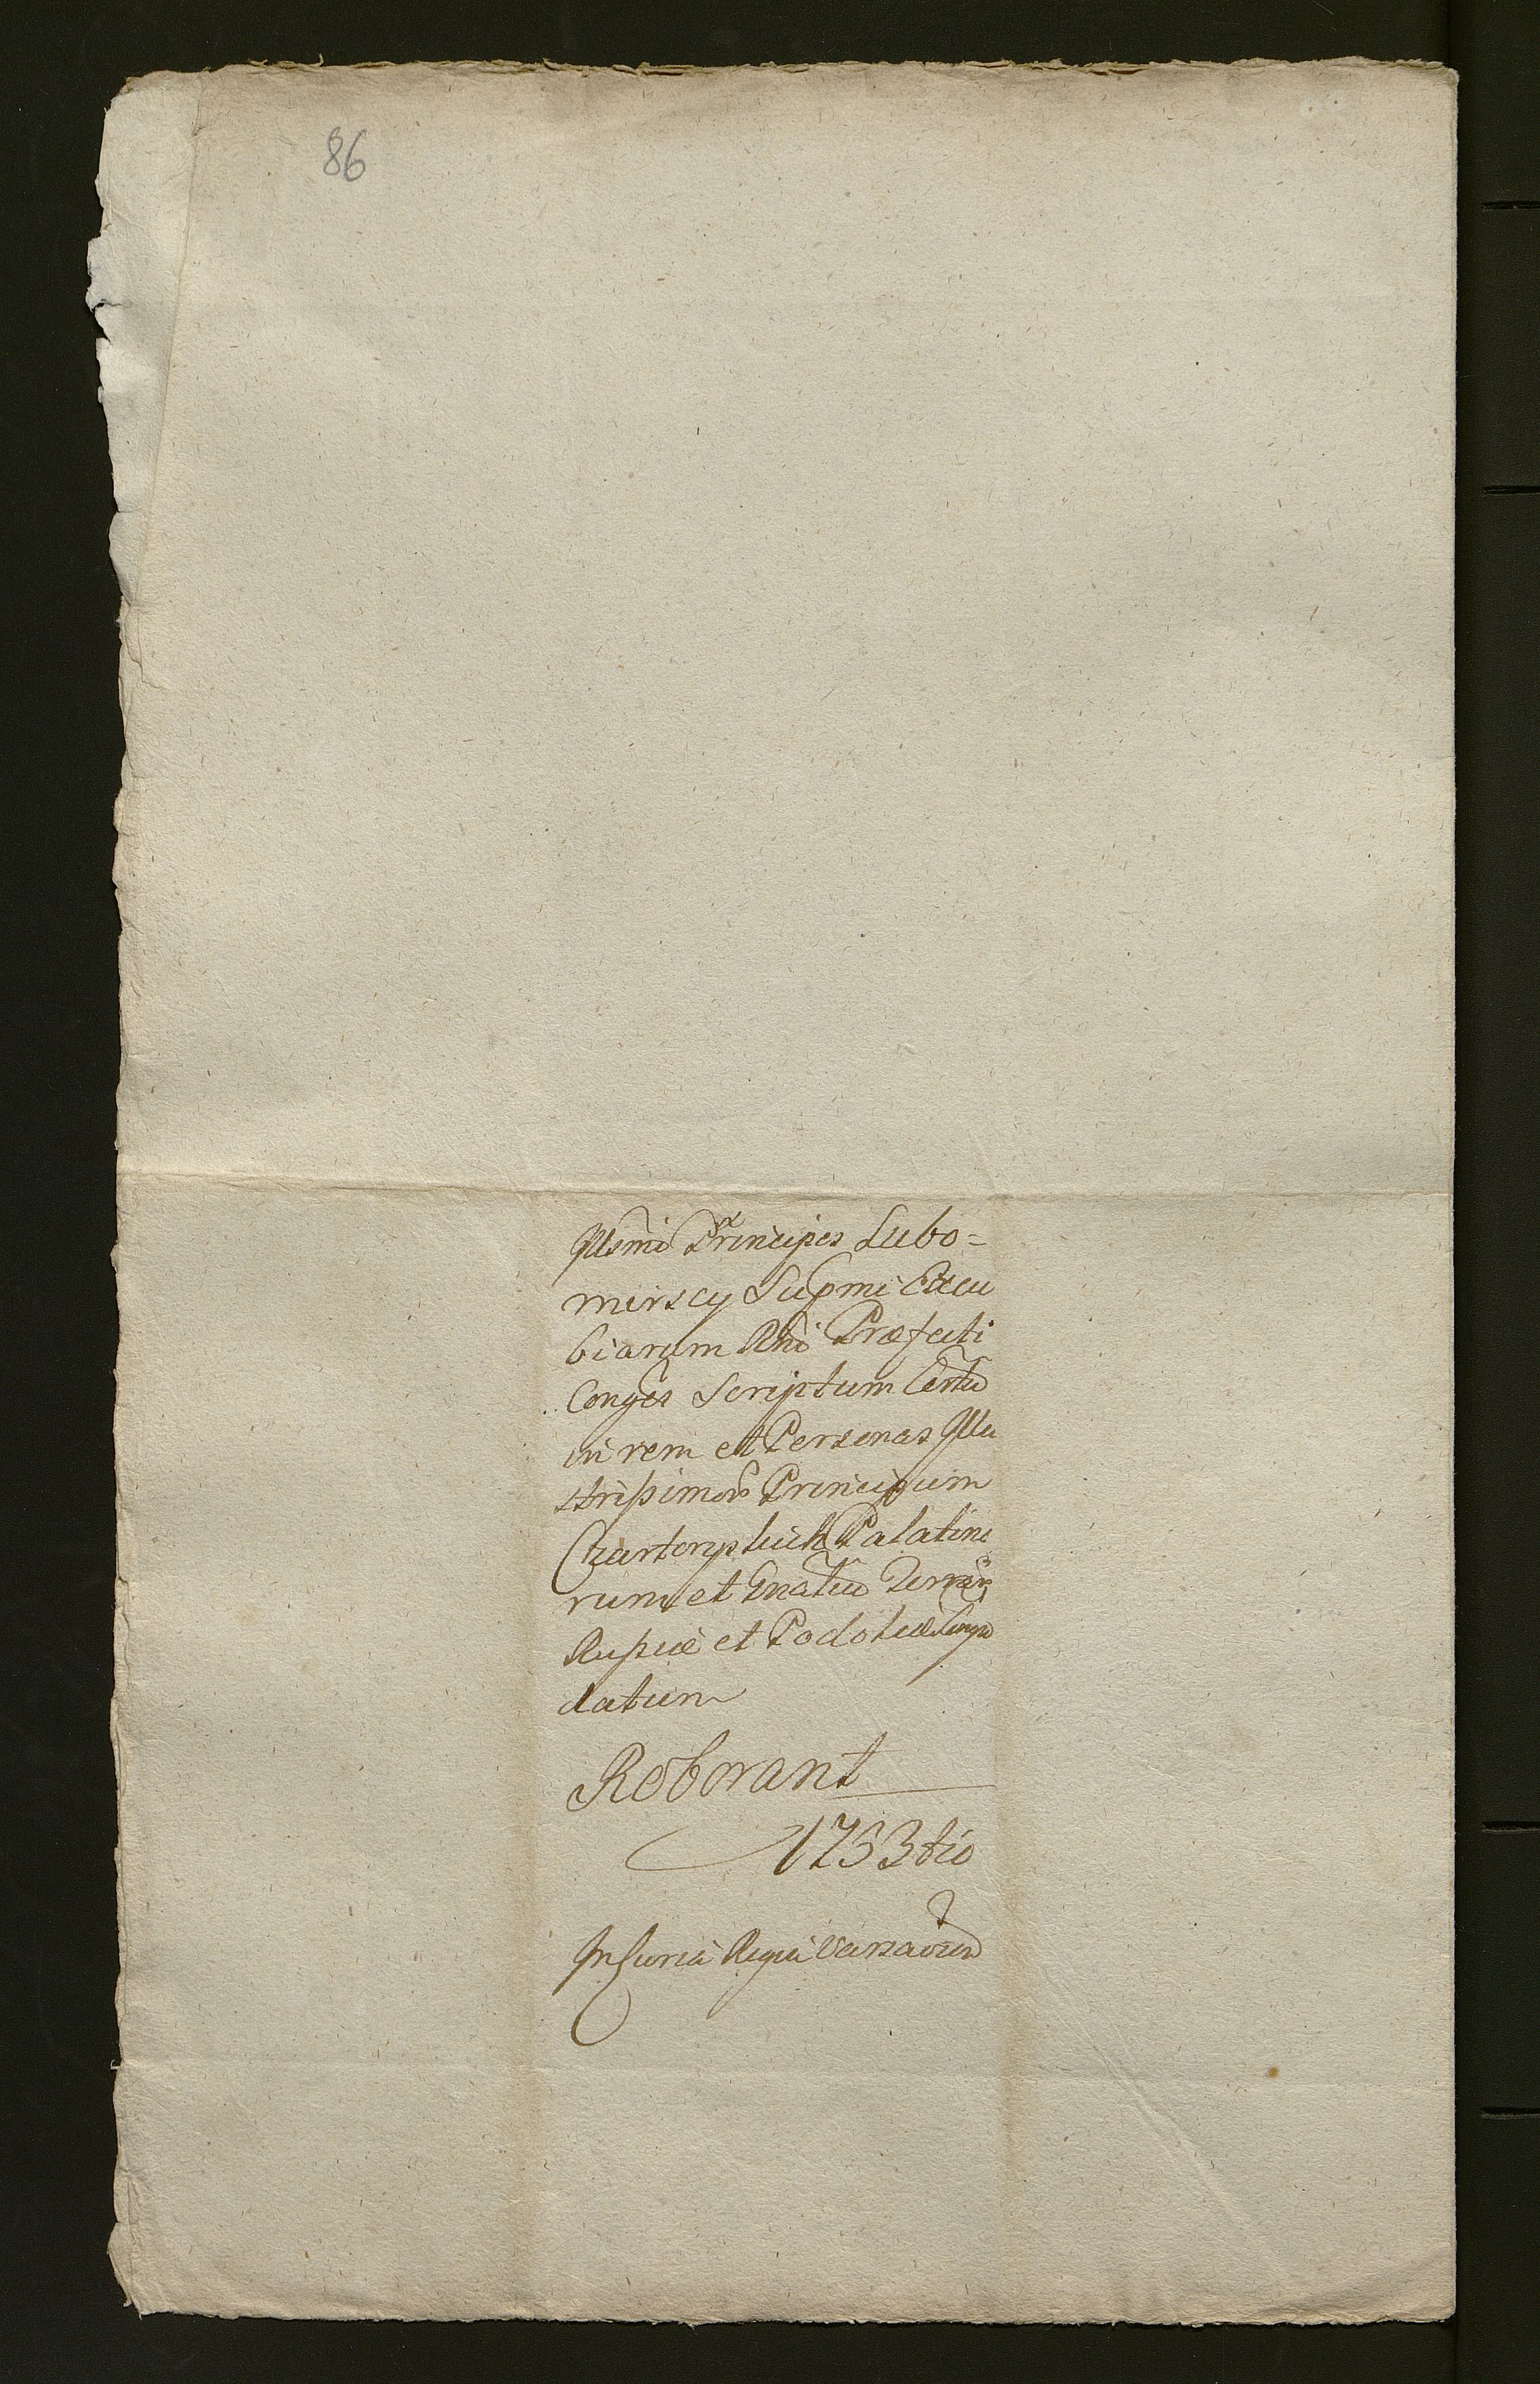 86
Illsmi Principes Lubo=
mirscy Supmi Excu
biarum Rni Præfecti
Conges Scriptum Certu
in rem et Personas Illu
strissimor Principum
Czartoryskich Palatino
rum et Gnaliu Terrar
Russiæ et Podoliæ
datum
Roborant
1753tio
In Curia Regia Varsavien